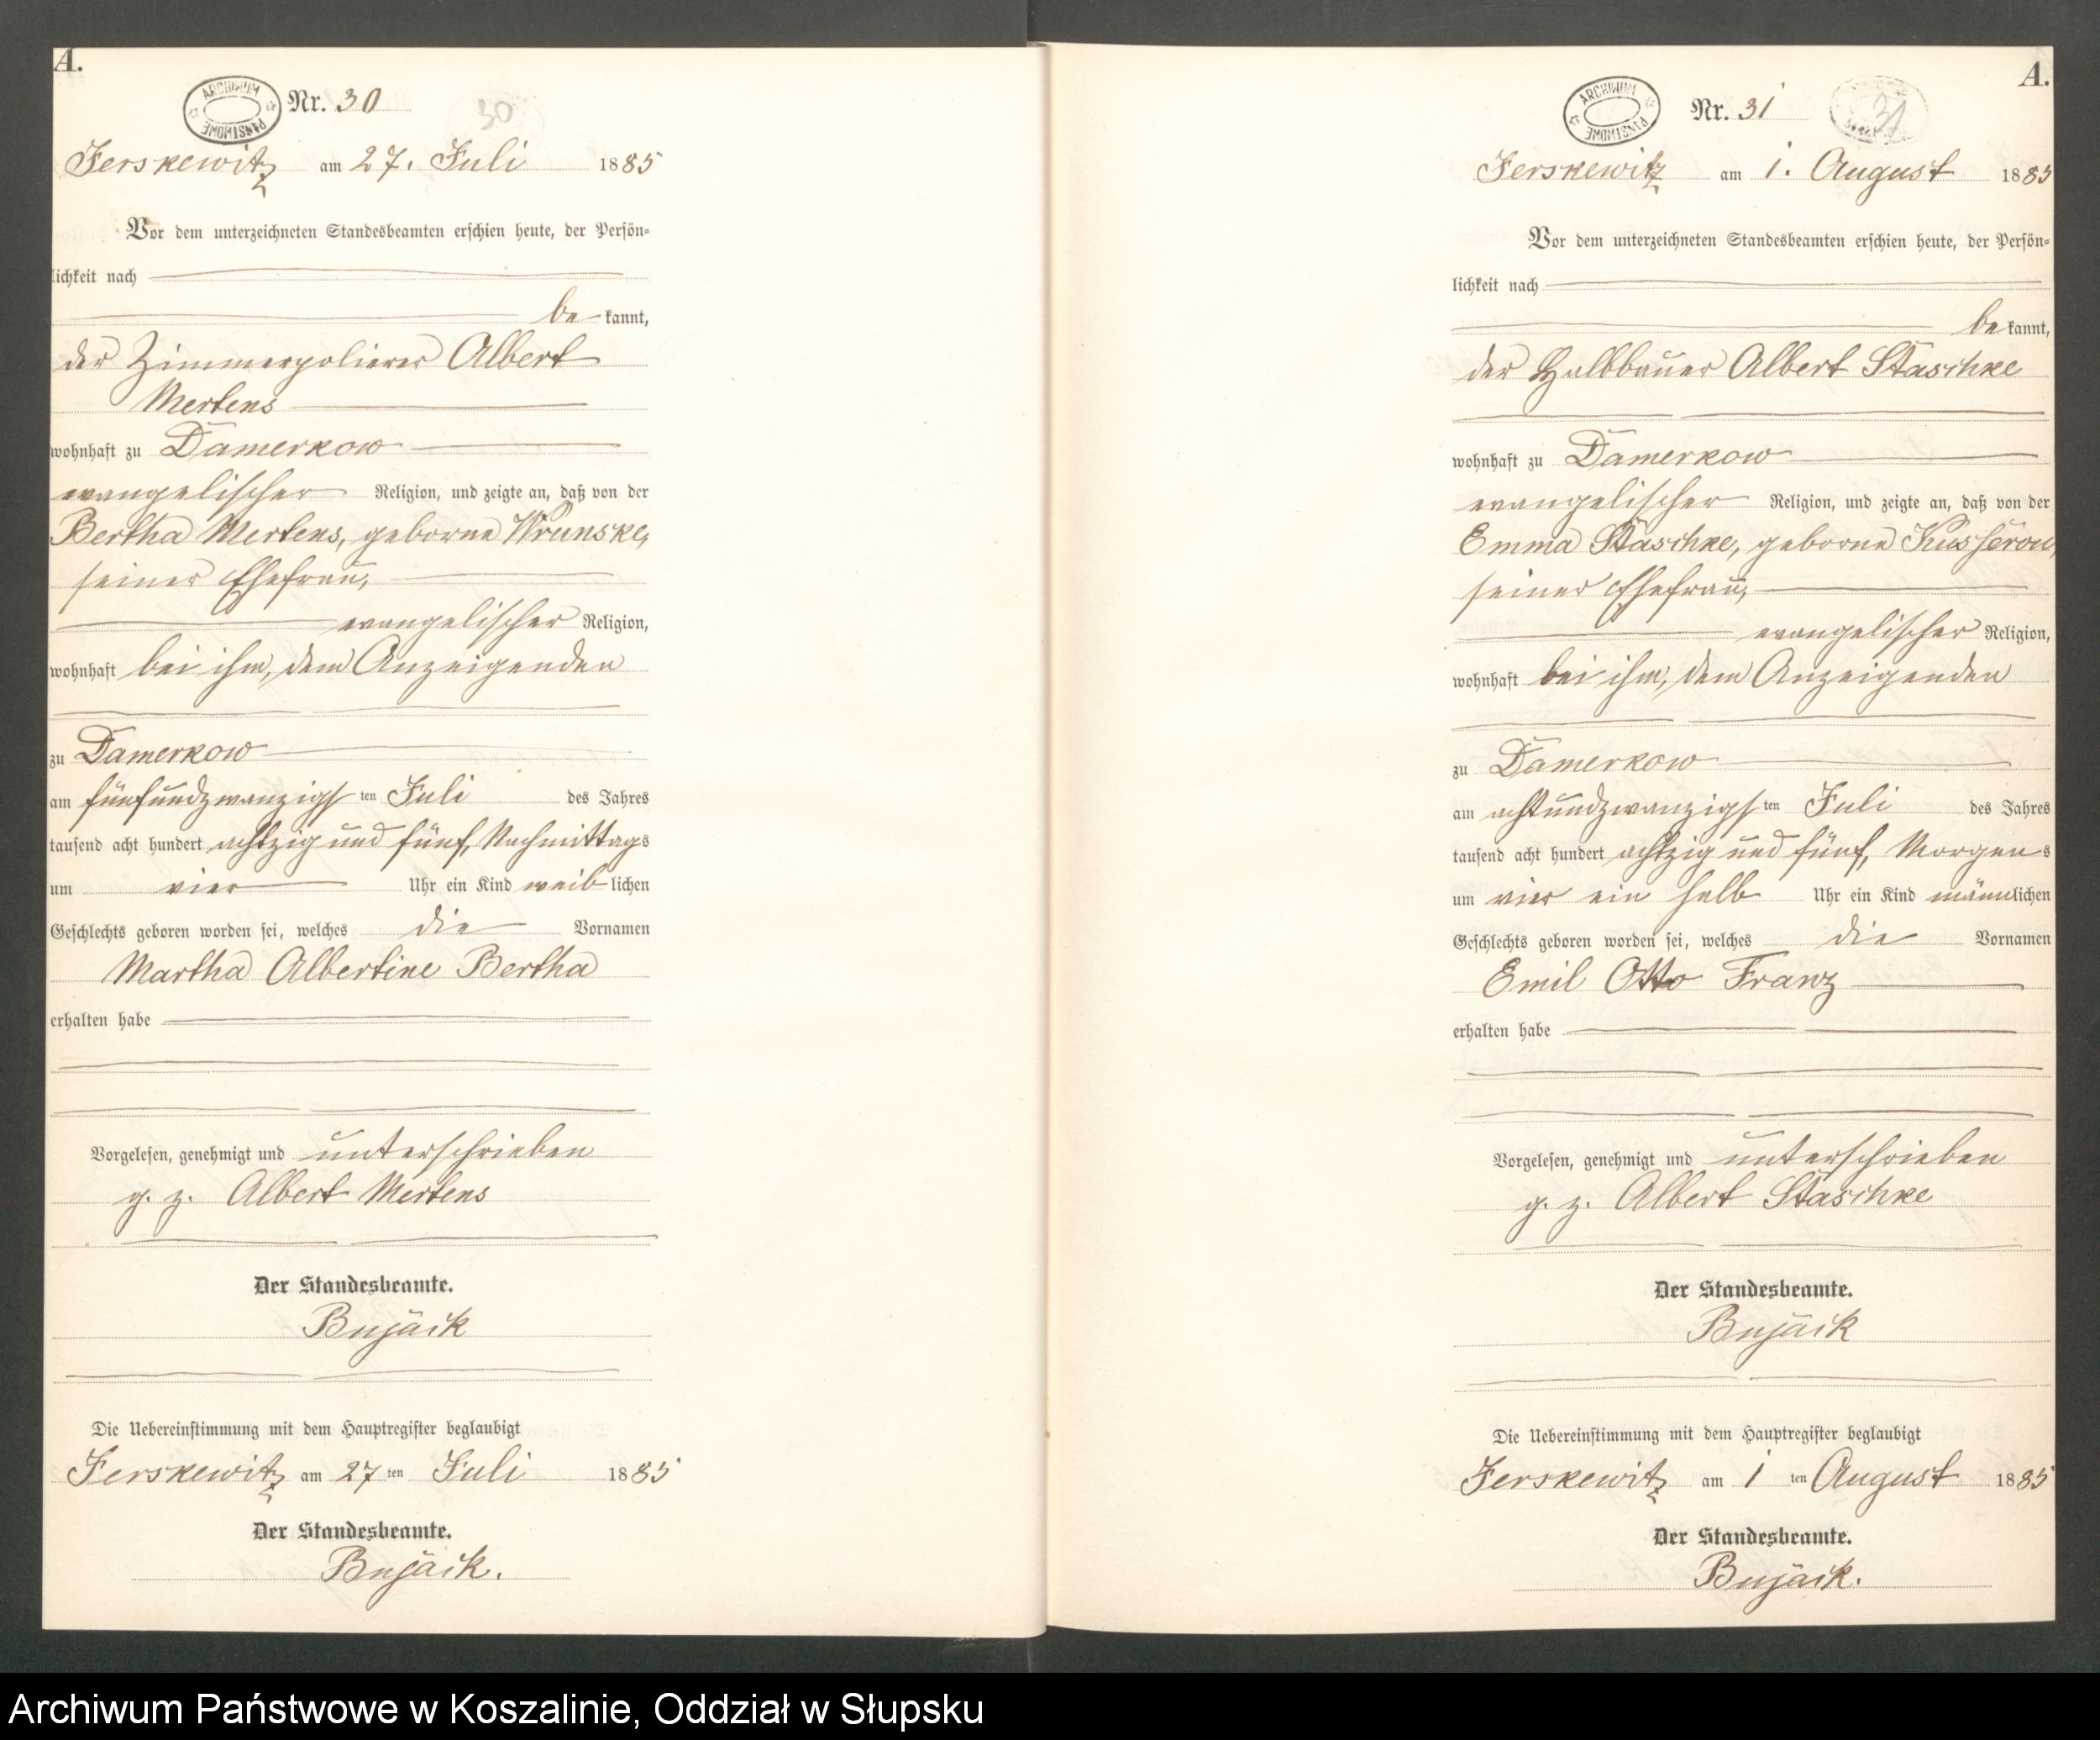 A.
ARCHIWUM PAŃSTWOWE
Nr. 30
30
Jerskewitz am 27. Juli 1885
Vor dem unterzeichneten Standesbeamten erschien heute, der Persön-
lichkeit nach
be kannt,
der Zimmerpolierer Albert
Mertens
wohnhaft zu Damerkow
evangelischer Religion, und zeigte an, daß von der
Bertha Mertens, geborne Wrunske,
seiner Ehefrau,
evangelischer Religion,
wohnhaft bei ihm, dem Anzeigenden
zu Damerkow
am fünfundzwanzigsten Juli des Jahres
tausend acht hundert achtzig und fünf, Nachmittags
um vier Uhr ein Kind weiblichen
Geschlechts geboren worden sei, welches die Vornamen
Martha Albertine Bertha
erhalten habe
Vorgelesen, genehmigt und unterschrieben
g. z. Albert Mertens
Der Standesbeamte.
Bujack
Die Uebereinstimmung mit dem Hauptregister beglaubigt
Jerskewitz am 27 ten Juli 1885
Der Standesbeamte.
Bujack.
A.
ARCHIWUM PAŃSTWOWE
Nr. 31
31
Jerskewitz am 1. August 1885
Vor dem unterzeichneten Standesbeamten erschien heute, der Persön-
lichkeit nach
be kannt,
der Halbbauer Albert Staschke
wohnhaft zu Damerkow
evangelischer Religion, und zeigte an, daß von der
Emma Staschke, geborne Kusserow,
seiner Ehefrau,
evangelischer Religion,
wohnhaft bei ihm, dem Anzeigenden
zu Damerkow
am achtundzwanzigsten Juli des Jahres
tausend acht hundert achtzig und fünf, Morgens
um vier ein halb Uhr ein Kind männlichen
Geschlechts geboren worden sei, welches die Vornamen
Emil Otto Franz
erhalten habe
Vorgelesen, genehmigt und unterschrieben
g. z. Albert Staschke
Der Standesbeamte.
Bujack
Die Uebereinstimmung mit dem Hauptregister beglaubigt
Jerskewitz am 1 ten August 1885
Der Standesbeamte.
Bujack.
Archiwum Państwowe w Koszalinie, Oddział w Słupsku